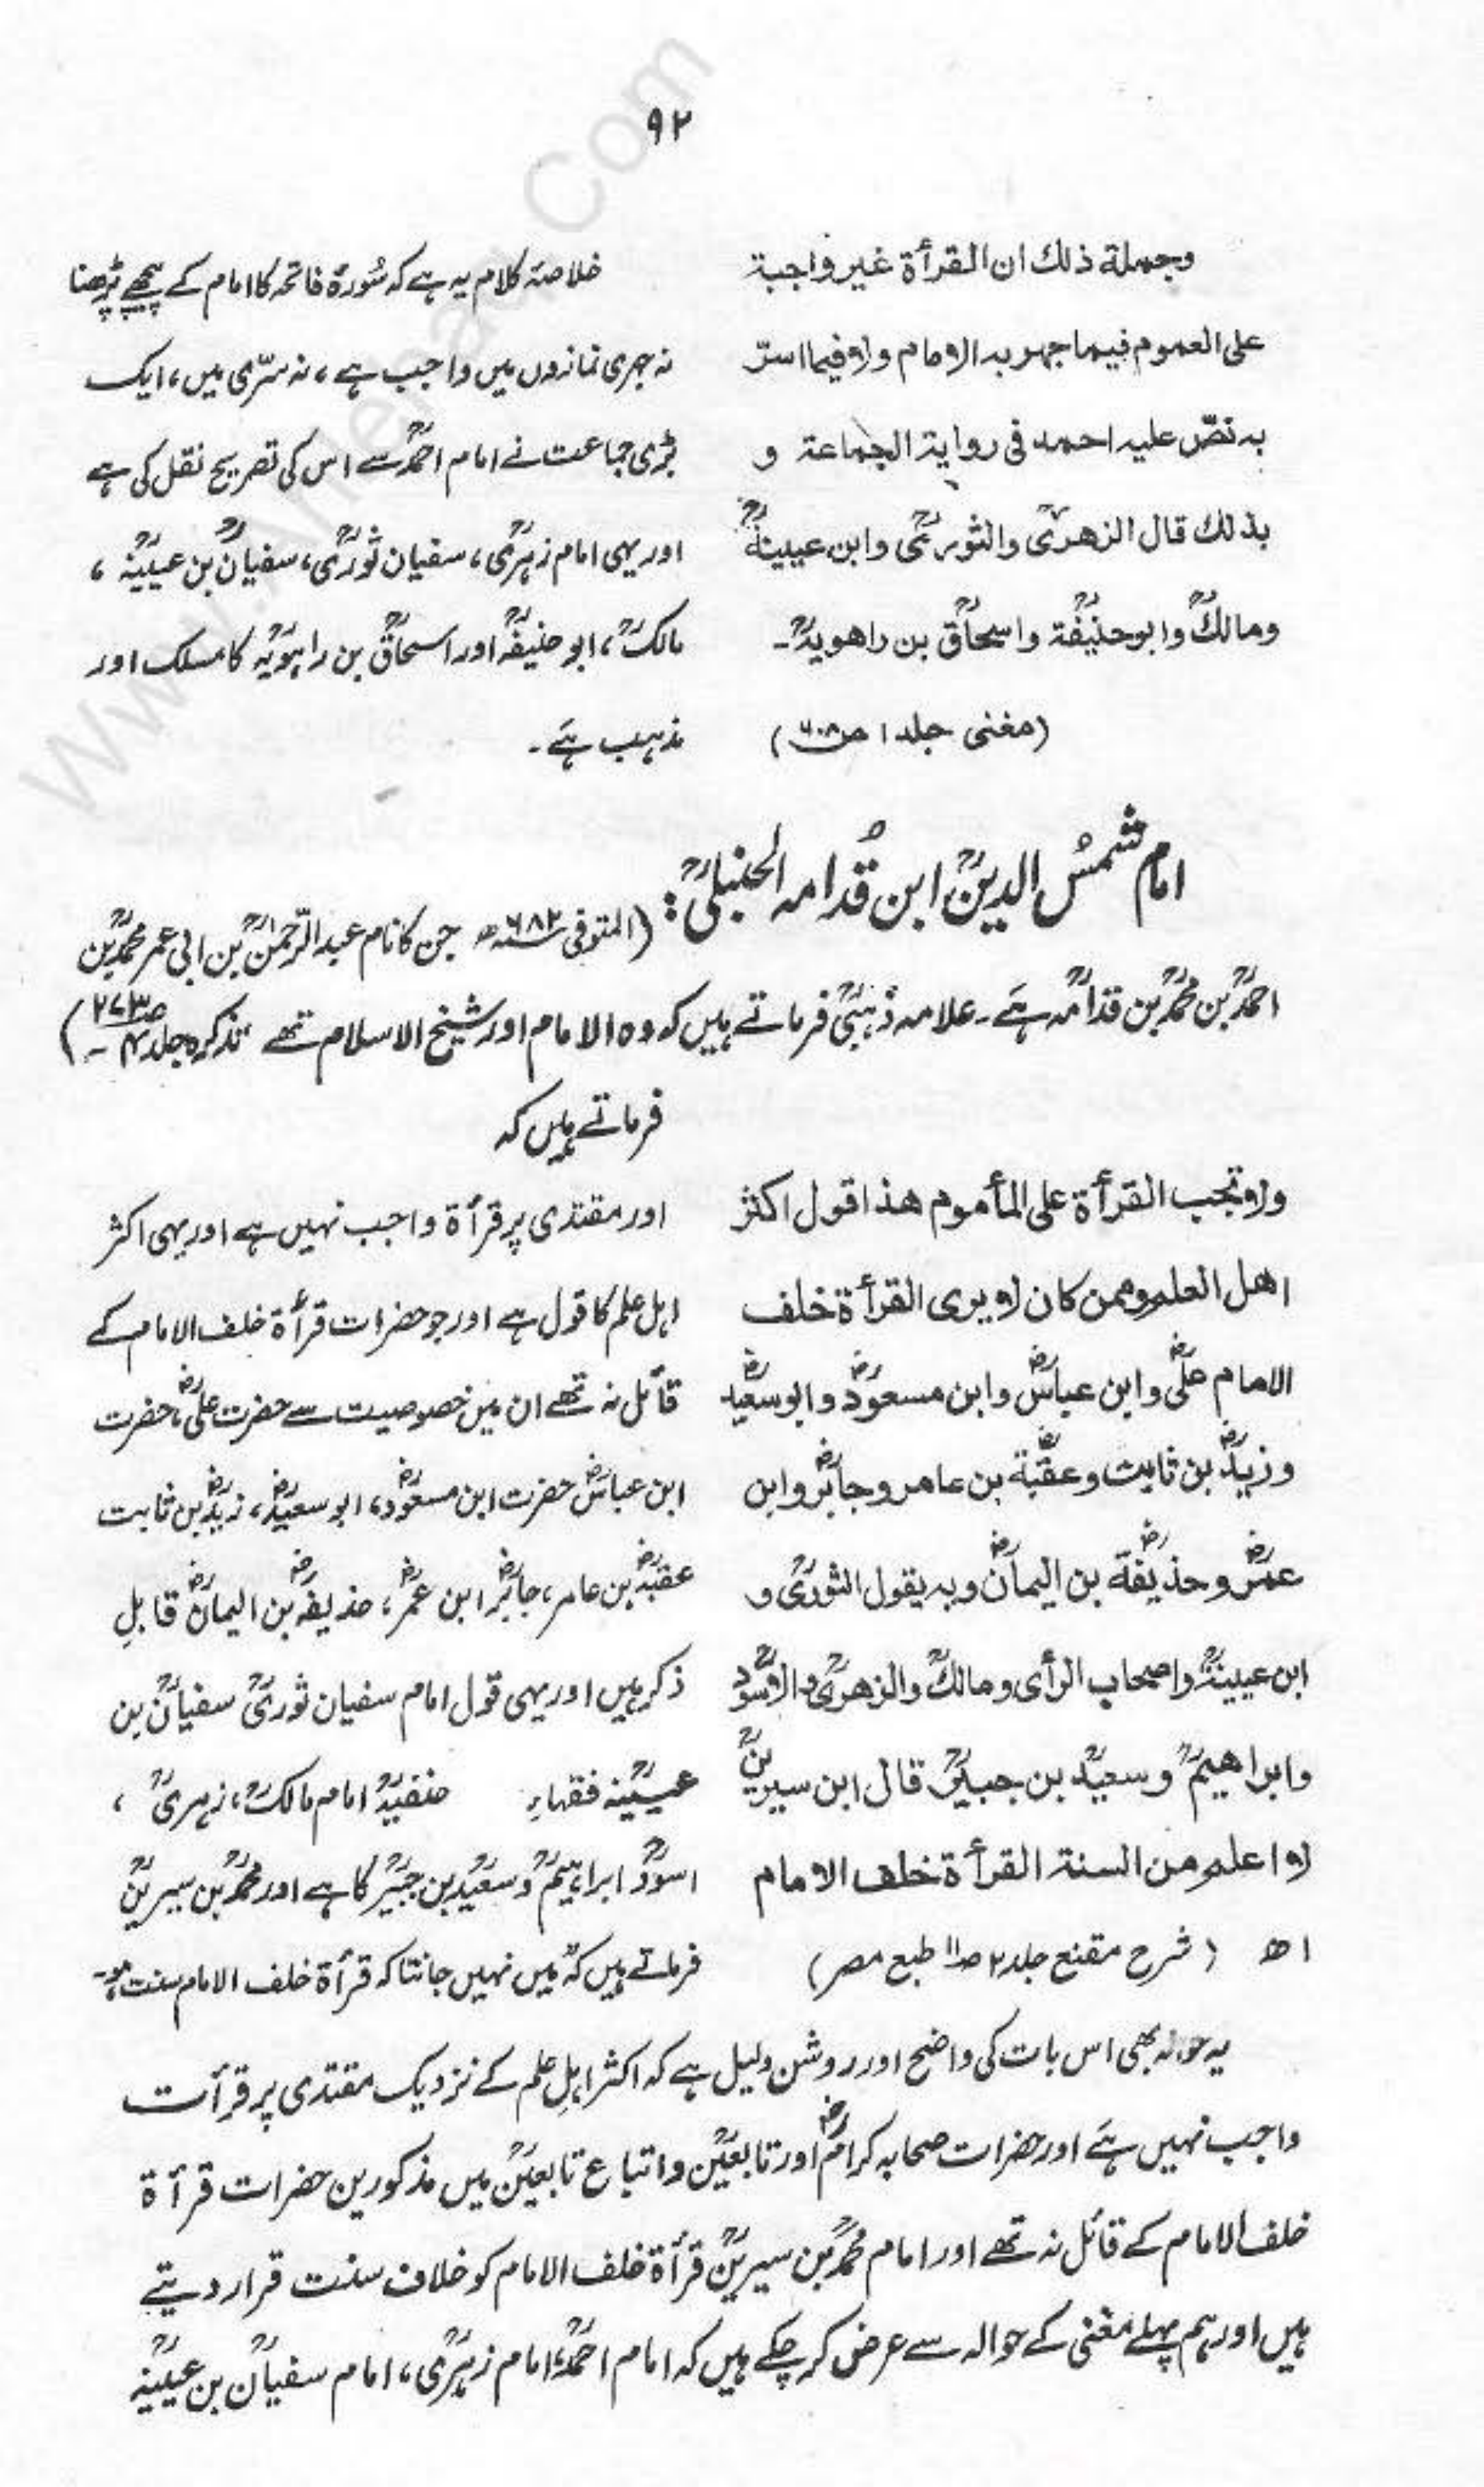 ۹۲
وجملة ذلك ان القرأة غير واجبة
على العموم فيما جهر به الامام ولا فيما اسرّ
به نصّ عليه احمد فى رواية الجماعة و
بذلك قال الزهرىؒ والثورىؒ وابن عيينةؒ
ومالكؒ وابوحنيفةؒ واسحاقؒ بن راهويهؒ۔
(مغنى جلد ۱ ص۶۰۸)
خلاصۂ کلام یہ ہے کہ سُورۃ فاتحہ کا امام کے پیچھے پڑھنا
نہ جہری نمازوں میں واجب ہے، نہ سرّی میں، ایک
بڑی جماعت نے امام احمدؒ سے اس کی تصریح نقل کی ہے
اور یہی امام زہریؒ، سفیان ثوریؒ، سفیانؒ بن عیینہؒ،
مالکؒ، ابو حنیفہؒ اور اسحاقؒ بن راہویہؒ کا مسلک اور
مذہب ہے۔
امام شمسُ الدینؒ ابن قُدامہ الحنبلیؒ:
(المتوفی ۶۸۲ھ جن کا نام عبدالرّحمٰنؒ بن ابی عمر محمدؒ بن
احمدؒ بن محمدؒ بن قدامہؒ ہے۔ علامہ ذہبیؒ فرماتے ہیں کہ وہ الامام اور شیخ الاسلام تھے تذکرہ جلد ۴ ص۲۷۳۔)
فرماتے ہیں کہ
ولا تجب القرأة على المأموم هذا قول اكثر
اهل العلم وممن كان لا يرى القرأة خلف
الامام علىؓ وابن عباسؓ وابن مسعودؓ وابوسعيدؓ
وزيدؓ بن ثابت وعقبةؓ بن عامر وجابرؓ وابن
عمرؓ وحذيفةؓ بن اليمانؓ وبه يقول الثورىؒ و
ابن عيينةؒ واصحاب الرأى ومالكؒ والزهرىؒ والاسودؒ
وابراهيمؒ وسعيدؒ بن جبيرؒ قال ابن سيرينؒ
لا اعلم من السنة القرأة خلف الامام
اھ (شرح مقنع جلد ۲ ص۱۱ طبع مصر)
اور مقتدی پر قرأۃ واجب نہیں ہے اور یہی اکثر
اہل علم کا قول ہے اور جو حضرات قرأۃ خلف الامام کے
قائل نہ تھے ان میں خصوصیت سے حضرت علیؓ، حضرت
ابن عباسؓ حضرت ابن مسعودؓ، ابو سعیدؓ، زیدؓ بن ثابت
عقبہؓ بن عامر، جابرؓ ابن عمرؓ، حذیفہؓ بن الیمانؓ قابلِ
ذکر ہیں اور یہی قول امام سفیان ثوریؒ سفیانؒ بن
عیینہؒ فقہاءِ حنفیہؒ امام مالکؒ، زہریؒ،
اسودؒ ابراہیمؒ و سعیدؒ بن جبیرؒ کا ہے اور محمدؒ بن سیرینؒ
فرماتے ہیں کہ میں نہیں جانتا کہ قرأۃ خلف الامام سنت ہو۔
یہ حوالہ بھی اس بات کی واضح اور روشن دلیل ہے کہ اکثر اہلِ علم کے نزدیک مقتدی پر قرأت
واجب نہیں ہے اور حضرات صحابہ کرامؓ اور تابعینؒ و اتباع تابعینؒ میں مذکورین حضرات قرأۃ
خلف الامام کے قائل نہ تھے اور امام محمدؒ بن سیرینؒ قرأۃ خلف الامام کو خلاف سنت قرار دیتے
ہیں اور ہم پہلے مغنی کے حوالہ سے عرض کر چکے ہیں کہ امام احمدؒ، امام زہریؒ، امام سفیانؒ بن عیینہؒ